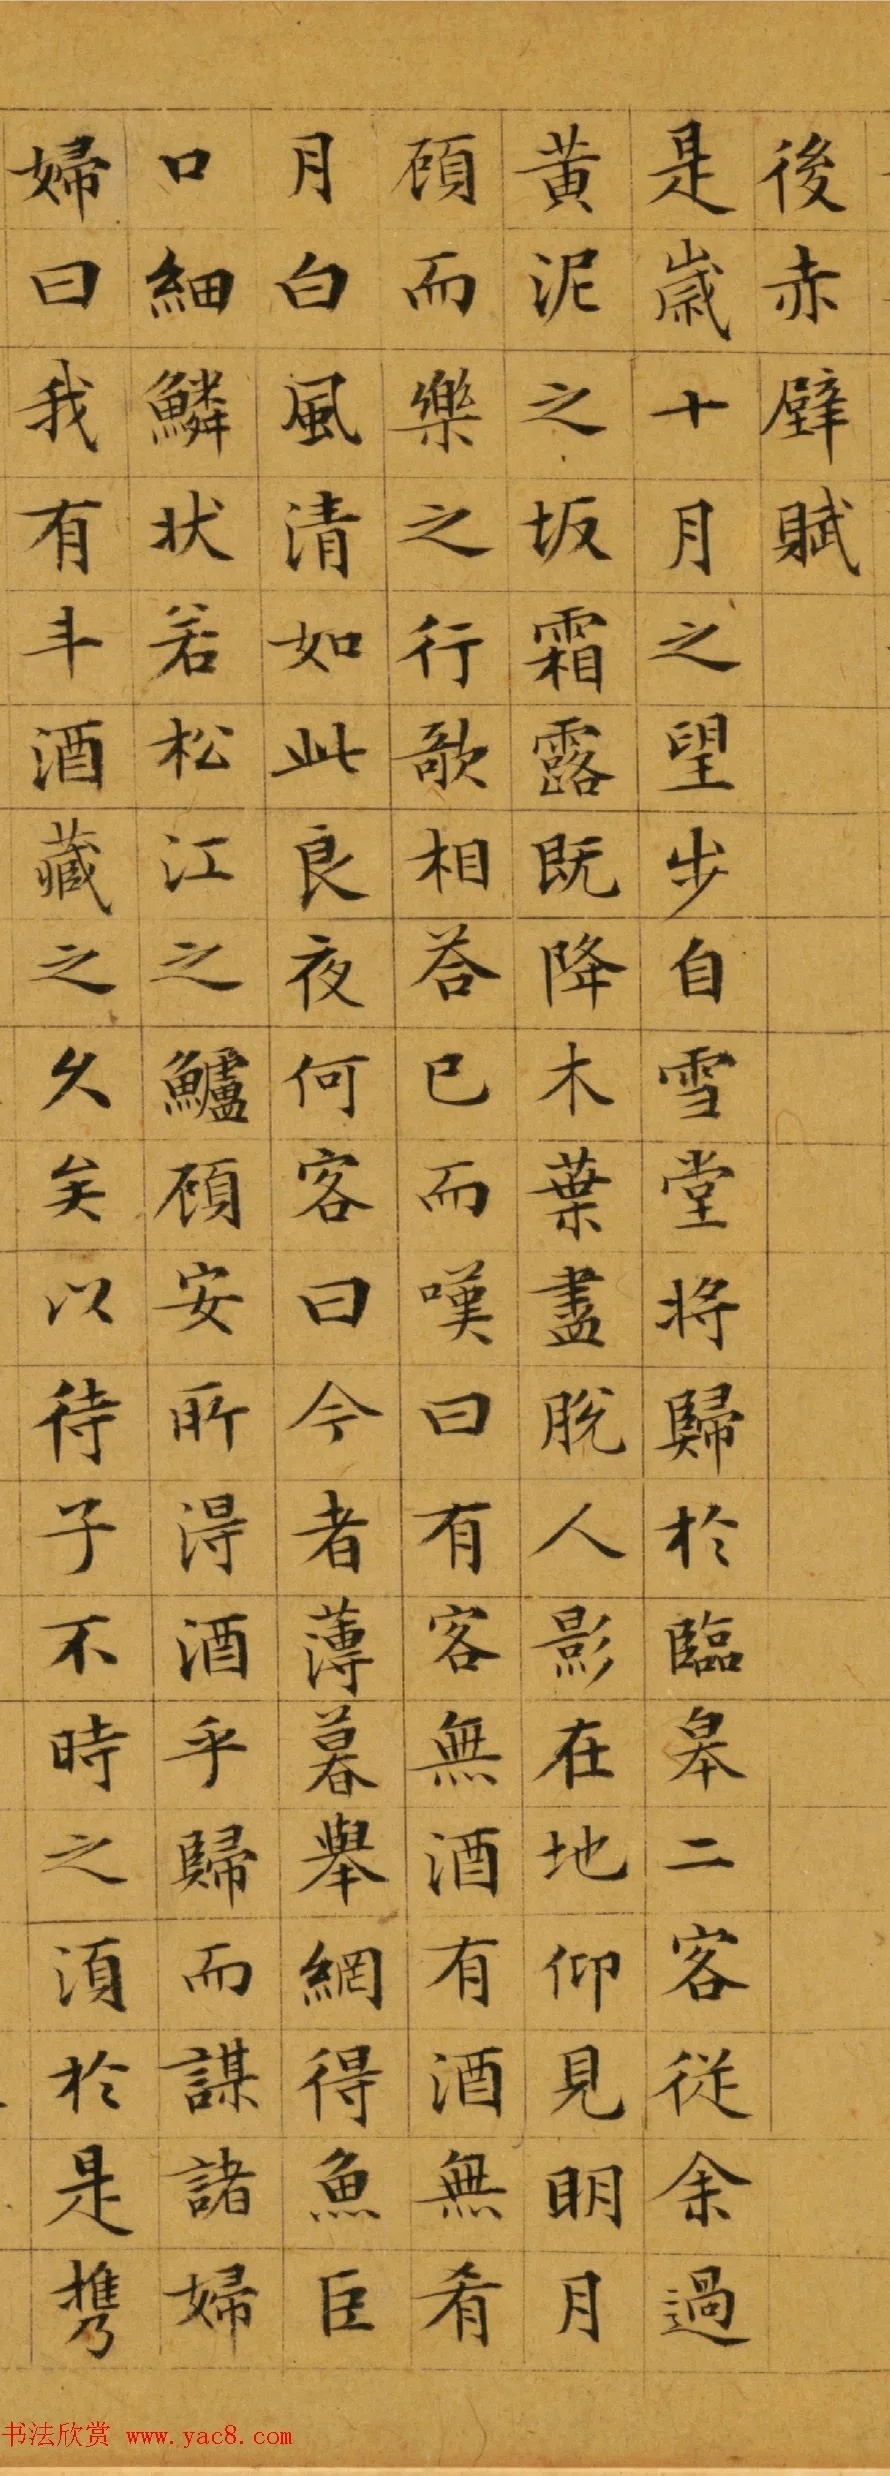 後赤壁賦
是歲十月之望步自雪堂將歸於臨皋二客從余過
黃泥之坂霜露既降木葉盡脫人影在地仰見明月
顧而樂之行歌相荅已而嘆曰有客無酒有酒無肴
月白風清如此良夜何客曰今者薄暮舉網得魚巨
口細鱗狀若松江之鱸顧安所得酒乎歸而謀諸婦
婦曰我有斗酒藏之久矣以待子不時之須於是携
书法欣赏 www.yac8.com